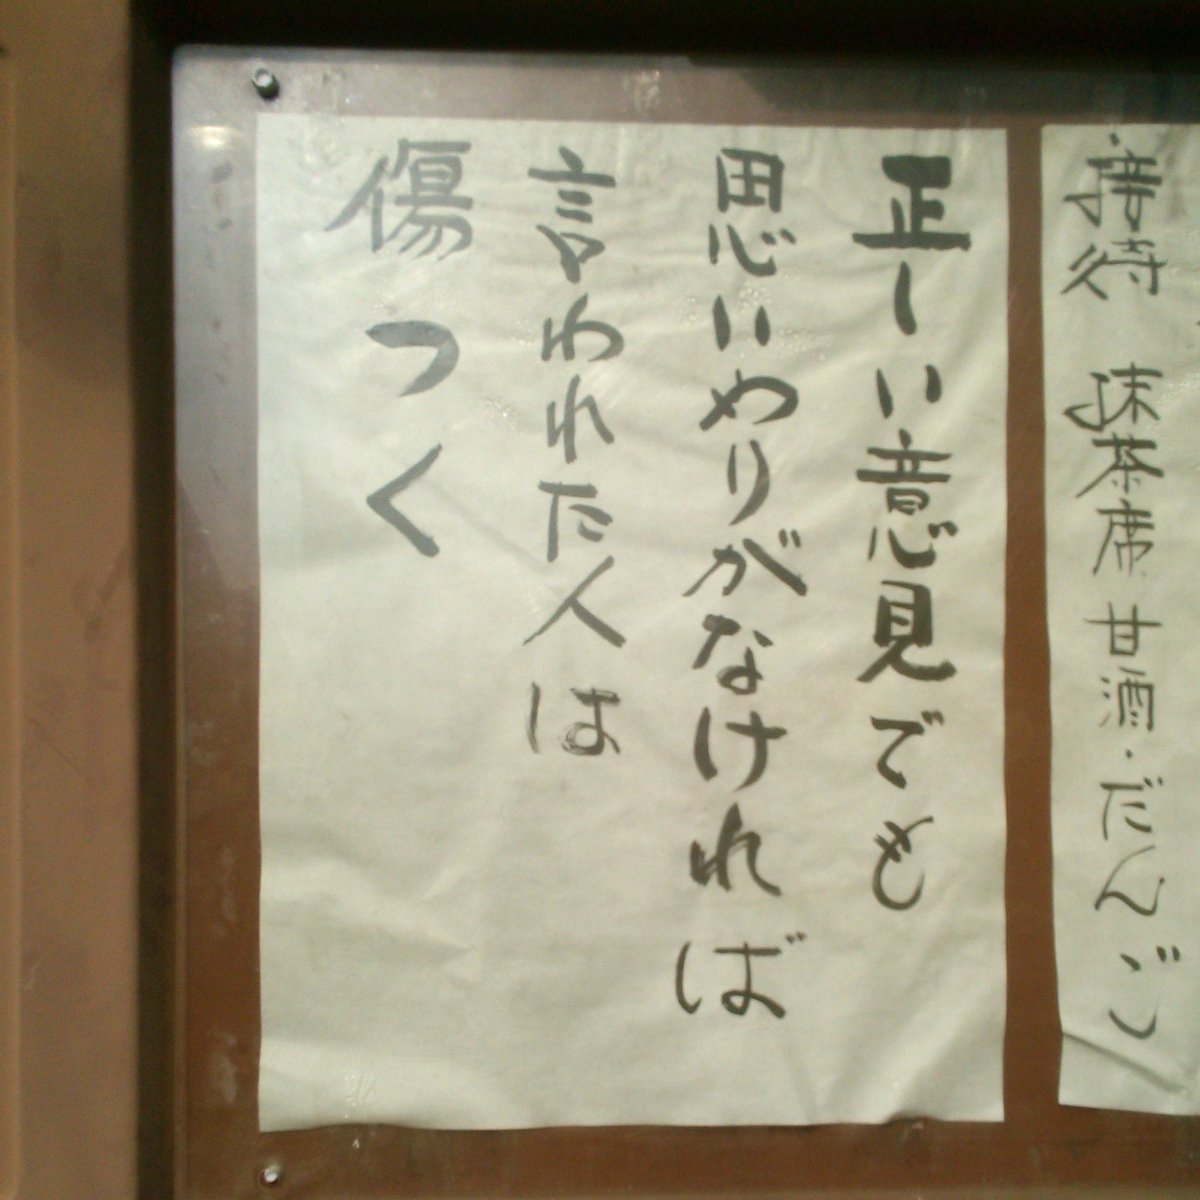 接待 抹茶席 甘酒・だんご
正しい意見でも
思いやりがなければ
言われた人は
傷つく